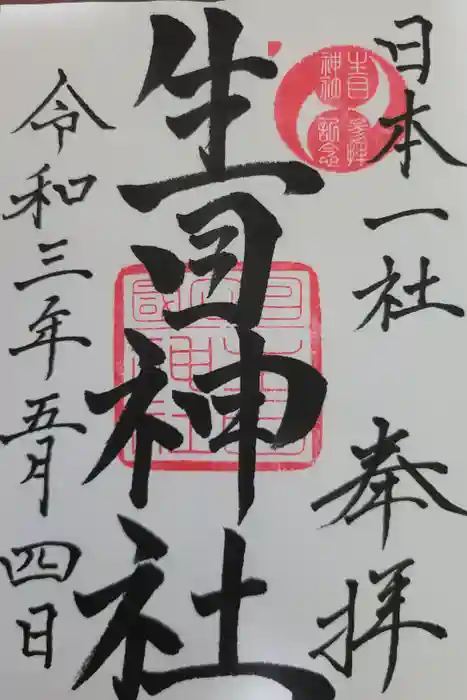 日本一社 奉拝
生目神社
令和三年五月四日
生目
神社
参拝
記念